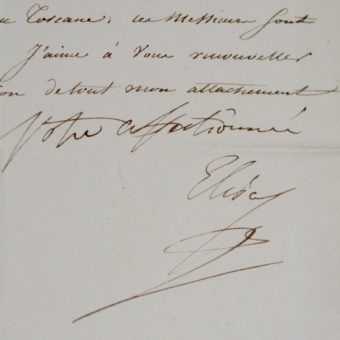 Toscane; ces Messieurs sont
J'aime à vous renouveller
de tout mon attachement
Votre affectionnée
Elisa